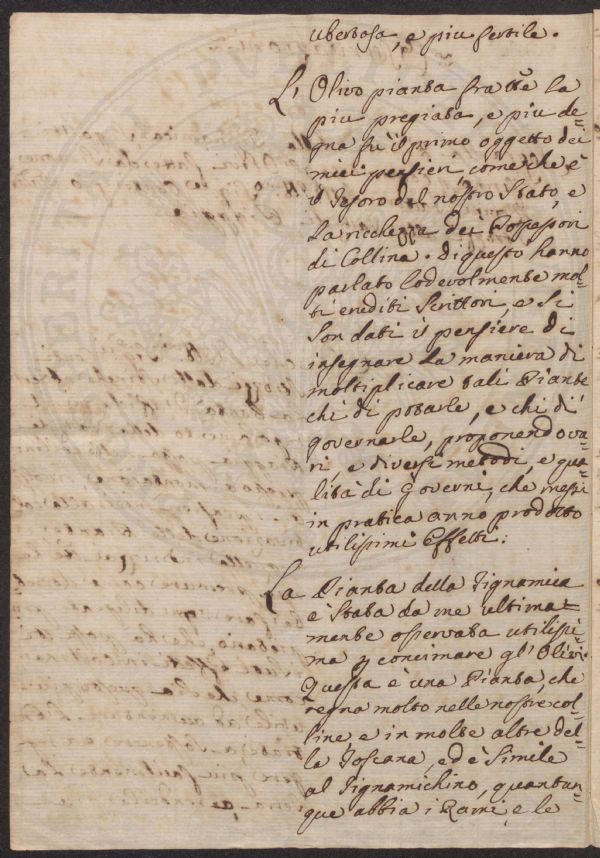 ubertosa, e piu fertile.
L'Olivo pianta fra tt.e la
piu pregiata, e piu de=
gna fù il primo oggetto dei
miei pensieri, come che è
il Tesoro del nostro Stato, e
la ricchezza dei Possessori
di Collina. Di questo hanno
parlato lodevolmente mol=
ti eruditi Scrittori, e si
son dati il pensiere di
insegnare la maniera di
moltiplicare tali Piante
chi di potarle, e chi di
governarle, proponendo va=
ri, e diversi metodi, e qua=
lità di governi, che messi
in pratica anno prodotto
utilissimi effetti.
La Pianta della Tignamica
è stata da me ultima=
mente osservata utilissi=
ma p concimare gl'Olivi.
Questa è una Pianta, che
regna molto nelle nostre col=
line, e in molte altre del=
la Toscana, ed è simile
al Tignamichino, quantun=
que abbia i Rami, e le